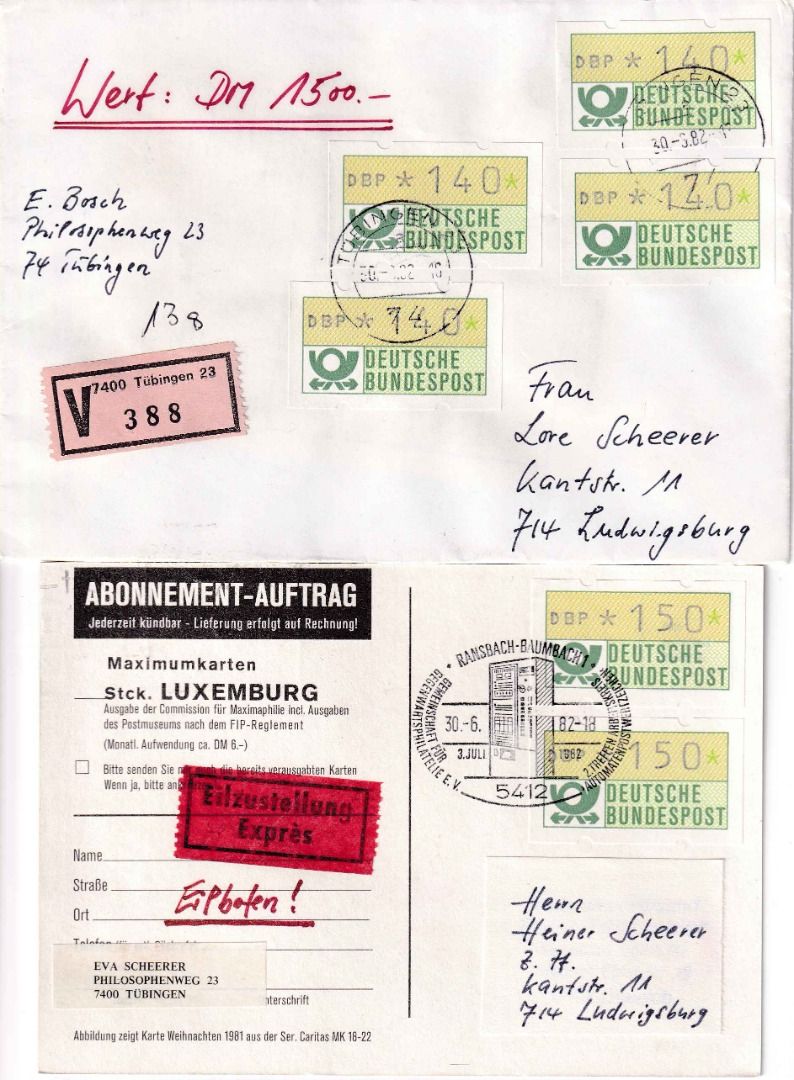 Wert: DM 1500.-
DBP * 140*
DEUTSCHE
BUNDESPOST
30.-6.82-
DBP * 140*
DEUTSCHE
BUNDESPOST
E. Bosch
Philosophenweg 23
74 Tübingen
138
DBP * 140*
DEUTSCHE
BUNDESPOST
TÜBINGEN
30.-6.82-18
74
DBP * 140*
DEUTSCHE
BUNDESPOST
V 7400 Tübingen 23
388
Frau
Lore Scheerer
Kantstr. 11
714 Ludwigsburg
ABONNEMENT-AUFTRAG
Jederzeit kündbar - Lieferung erfolgt auf Rechnung!
Maximumkarten
Stck. LUXEMBURG
Ausgabe der Commission für Maximaphilie incl. Ausgaben
des Postmuseums nach dem FIP-Reglement
(Monatl. Aufwendung ca. DM 6.-)
Bitte senden Sie mir auch die bereits verausgabten Karten
Wenn ja, bitte
Eilzustellung
Exprès
Name
Straße
Ort
Eilboten!
EVA SCHEERER
PHILOSOPHENWEG 23
7400 TÜBINGEN
Abbildung zeigt Karte Weihnachten 1981 aus der Ser. Caritas MK 16-22
DBP * 150*
DEUTSCHE
BUNDESPOST
150*
DEUTSCHE
BUNDESPOST
RANSBACH-BAUMBACH 1
GEMEINSCHAFT FÜR
GEGENWARTSPHILATELIE E.V.
30.-6. 82-18
3.JULI 1982
2.TREFFEN
AUTOMATENPOSTWERTZEICHEN
5412
Herrn
Heiner Scheerer
z. H.
Kantstr. 11
714 Ludwigsburg